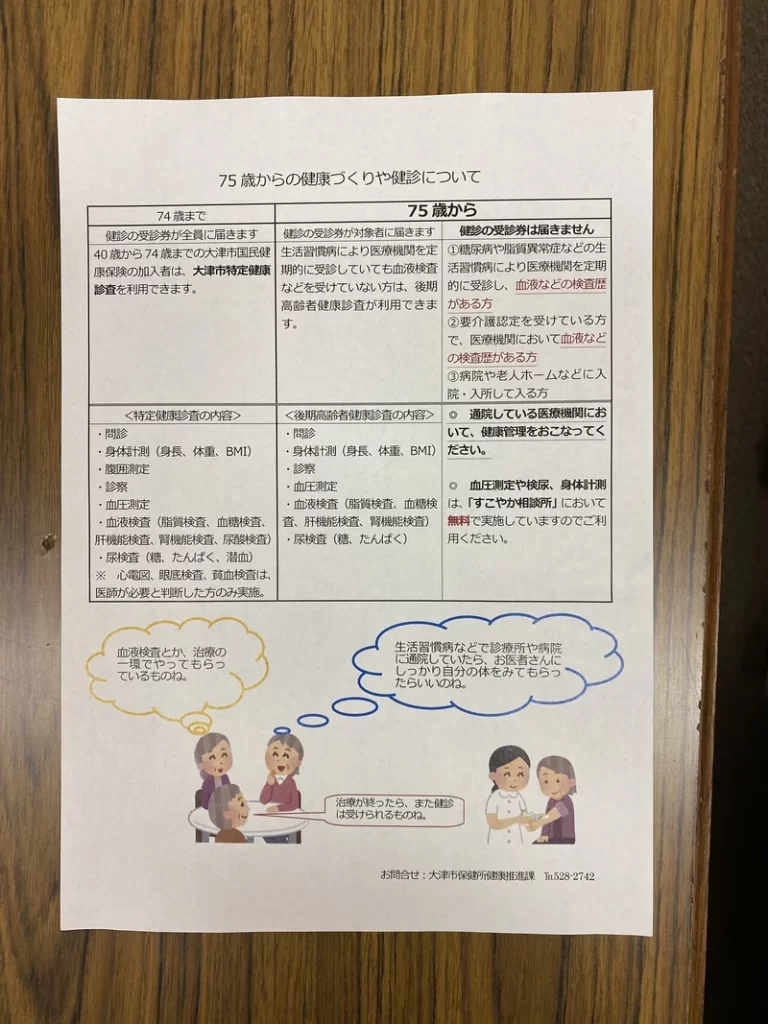 75歳からの健康づくりや健診について
74歳まで
75歳から
健診の受診券が全員に届きます
健診の受診券が対象者に届きます
健診の受診券は届きません
40歳から74歳までの大津市国民健
康保険の加入者は、大津市特定健康
診査を利用できます。
生活習慣病により医療機関を定
期的に受診していても血液検査
などを受けていない方は、後期
高齢者健康診査が利用できま
す。
①糖尿病や脂質異常症などの生
活習慣病により医療機関を定期
的に受診し、血液などの検査歴
がある方
②要介護認定を受けている方
で、医療機関において血液など
の検査歴がある方
③病院や老人ホームなどに入
院・入所して入る方
＜特定健康診査の内容＞
・問診
・身体計測（身長、体重、BMI）
・腹囲測定
・診察
・血圧測定
・血液検査（脂質検査、血糖検査、
肝機能検査、腎機能検査、尿酸検査）
・尿検査（糖、たんぱく、潜血）
※　心電図、眼底検査、貧血検査は、
医師が必要と判断した方のみ実施。
＜後期高齢者健康診査の内容＞
・問診
・身体計測（身長、体重、BMI）
・診察
・血圧測定
・血液検査（脂質検査、血糖検
査、肝機能検査、腎機能検査）
・尿検査（糖、たんぱく）
◎　通院している医療機関にお
いて、健康管理をおこなってく
ださい。
◎　血圧測定や検尿、身体計測
は、「すこやか相談所」において
無料で実施していますのでご利
用ください。
血液検査とか、治療の
一環でやってもらっ
ているものね。
生活習慣病などで診療所や病院
に通院していたら、お医者さんに
しっかり自分の体をみてもらっ
たらいいのね。
治療が終ったら、また健診
は受けられるものね。
お問合せ：大津市保健所健康推進課　℡528-2742